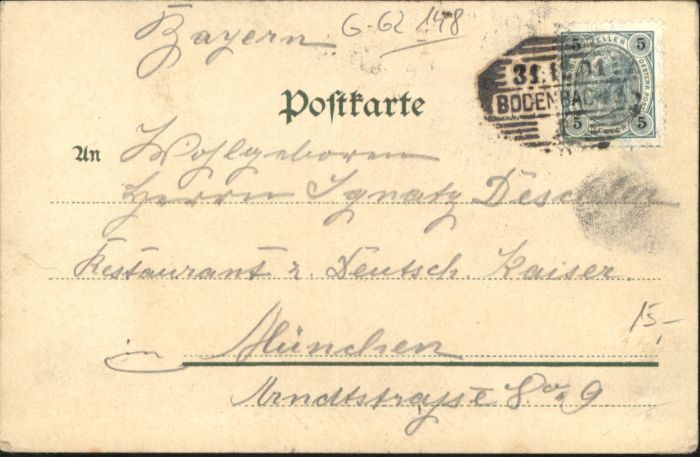 Bayern G-62 148
5 HELLER 5
31. 01
BODENBACH
5 5
Postkarte
An Wohlgeboren
Herrn Ignatz
Restaurant z. Deutsch. Kaiser.
15,-
in München
Arndtstraße 9